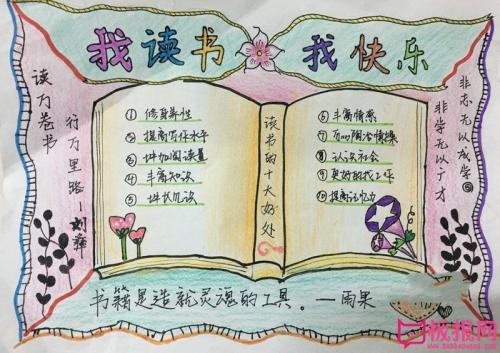 我读书 我快乐
读万卷书
行万里路—刘彝
① 修身养性
② 提高写作水平
③ 增加阅读量
④ 丰富知识
⑤ 增长见识
读书的十大好处
⑥ 丰富情感
⑦ 可以陶冶情操
⑧ 认识社会
⑨ 更好的找工作
⑩ 提高记忆力
非志无以成学
非学无以广才
书籍是造就灵魂的工具。—雨果
板报网